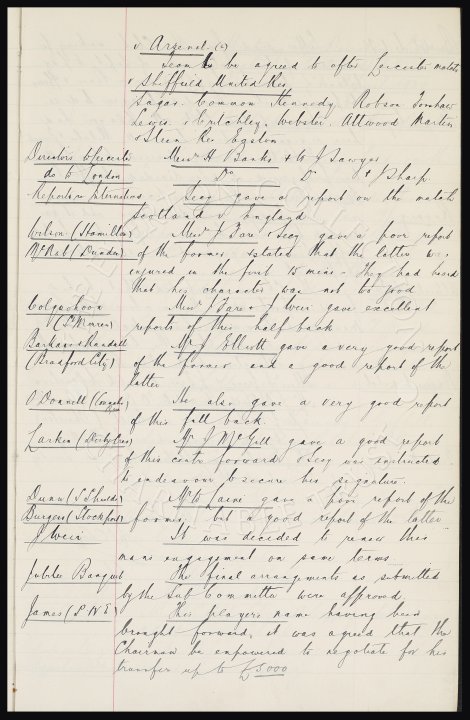 v Arsenal (a)
Team to be agreed to after Leicester match
v Sheffield United Res
Sagar. Common Kennedy. Robson Tonhaw
Lewis. Critchley. Webster. Attwood Martin
Steen Res Egston
Directors to Leicester Messrs H Banks & W J Sawyer
do to London Do Do & J Sharp
Reporters International Secy gave a report on the match
Scotland v England
Wilson (Hamilton) Messrs J Fare & Secy gave a poor report
McNab (Dundee) of the former & stated that the latter was
injured in the first 15 mins - They had heard
that his character was not too good
Colquhoun Messrs Fare & J Weir gave excellent
(St Mirren) reports of this half back
Barkas & Randall Mr J Elliott gave a very good report
(Bradford City) of the former and a good report of the
latter
O'Donnell He also gave a very good report
of this full back
Larkin (Derby Co) Mr J McGill gave a good report
of this centre forward & Secy was instructed
to endeavour to secure his signature.
Dunn (S Shields) Mr W gave a poor report of the
Burgess (Stockport) former, but a good report of the latter
J Weir It was decided to renew this
mans engagement on same terms.
Jubilee Banquet The final arrangements as submitted
by the Sub Committee were approved
James (P.N.E) This players name having been
brought forward, it was agreed that the
Chairman be empowered to negotiate for his
transfer up to £5000